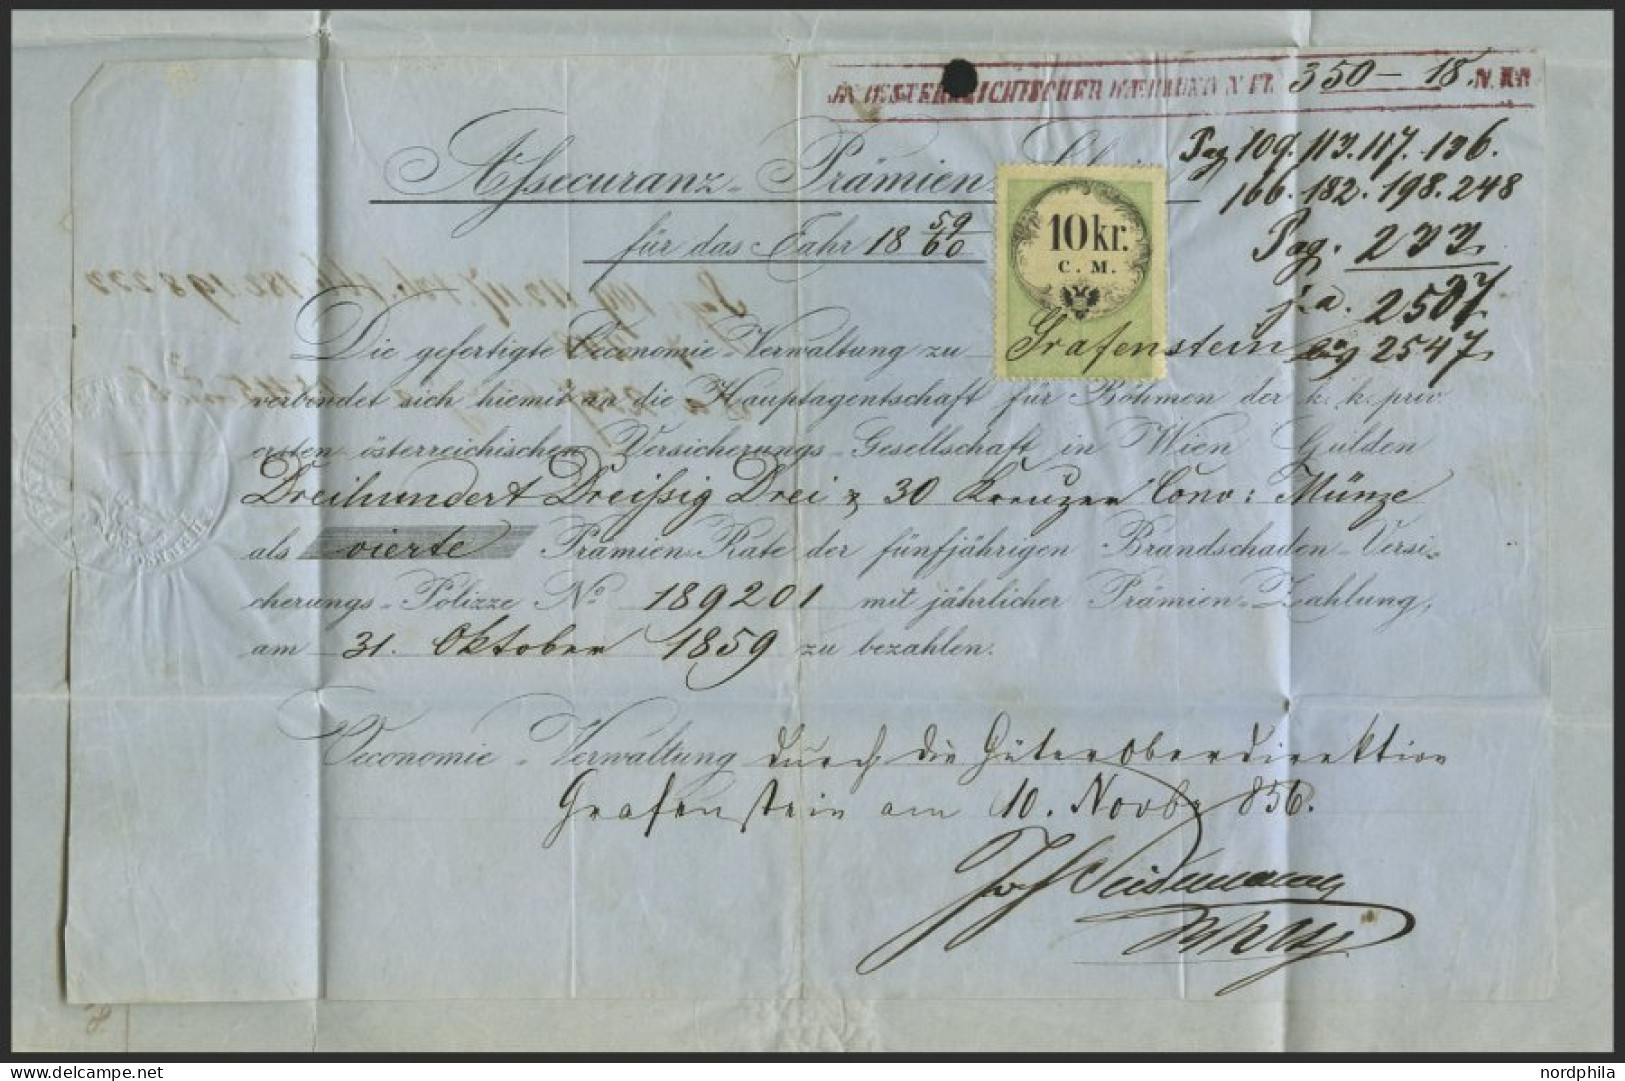 IN OESTERREICHISCHER WÄHRUNG N. Fl. 350 – 18 N. Kr.
Assecuranz-Prämien
Pag 109. 113. 117. 136.
166. 182. 198. 248
für das Jahr 18 59/60
10 kr.
C. M.
Pag. 233
2507
2547
Die gefertigte Oeconomie-Verwaltung zu Grafenstein
verbindet sich hiemit an die Hauptagentschaft für Böhmen der k. k. priv.
ersten österreichischen Versicherungs-Gesellschaft in Wien Gulden
Dreihundert Dreißig Drei & 30 Kreuzer Conv: Münze
als vierte Prämien-Rate der fünfjährigen Brandschaden-Versi-
cherungs-Polizze No 189201 mit jährlicher Prämien-Zahlung,
am 31. Oktober 1859 zu bezahlen.
Oeconomie-Verwaltung durch die Güteroberdirektion
Grafenstein am 10. Novbr 856.
nordphila